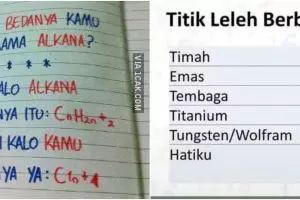 BEDANYA KAMU
AMA ALKANA?
* * *
ALO ALKANA
NYA ITU: CnH2n+2
KALO KAMU
YA YA:
VIA 1CAK.COM
Titik Leleh Berb
Timah
Emas
Tembaga
Titanium
Tungsten/Wolfram
Hatiku